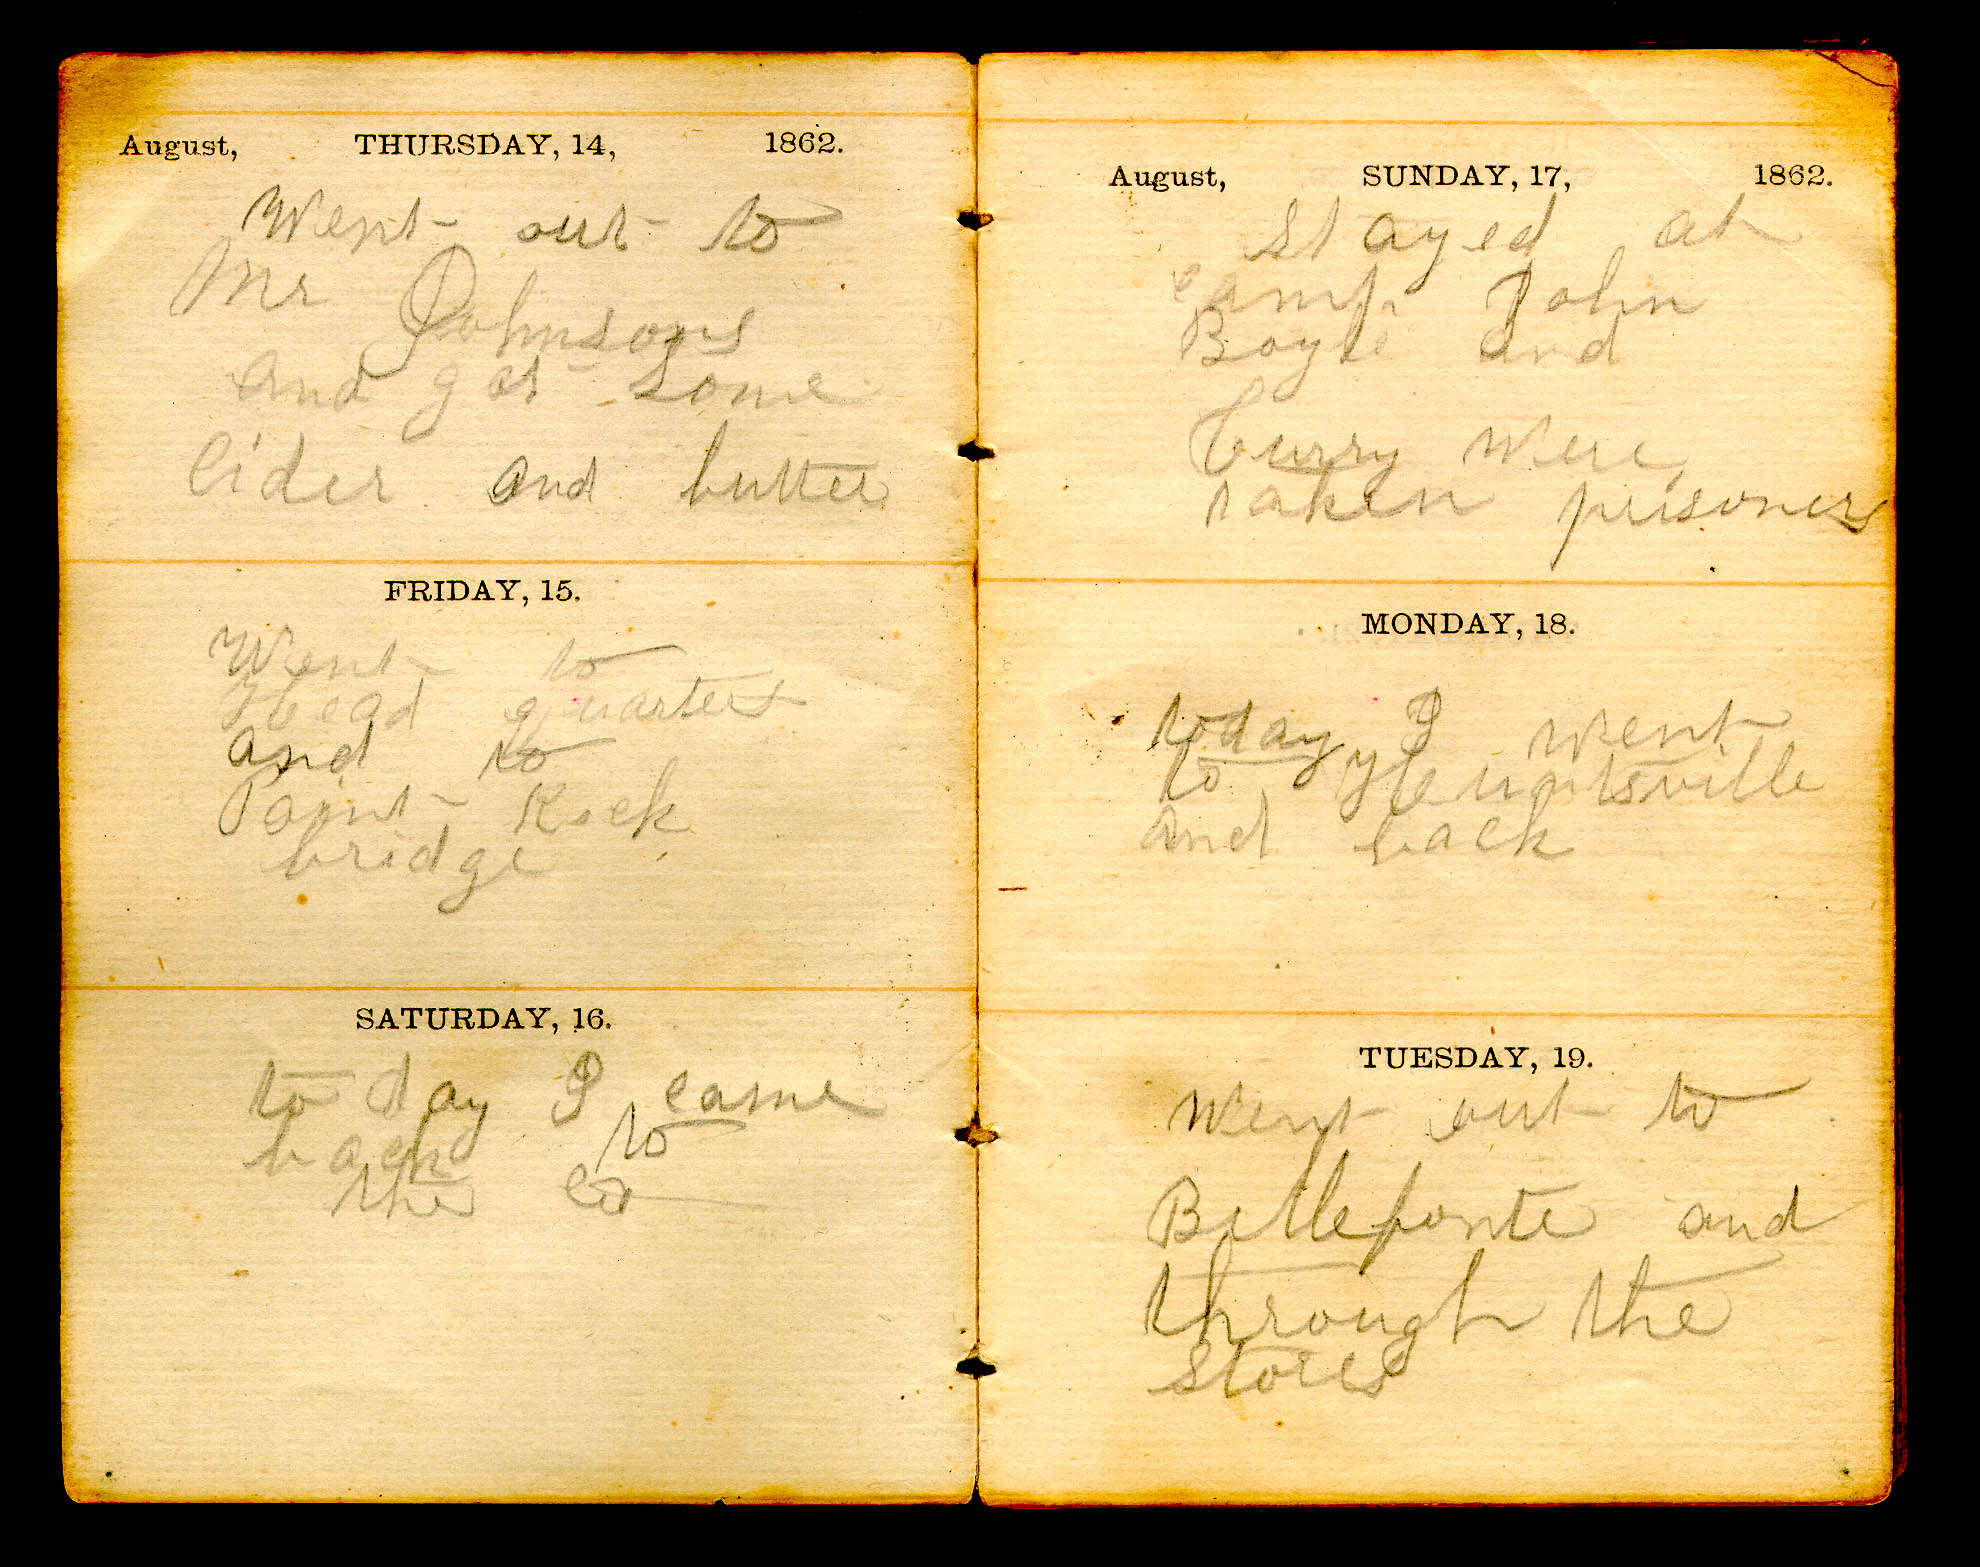 August, THURSDAY, 14, 1862.
Went out to
Mr Johnsons
and got some
Cider and butter
FRIDAY, 15.
Went to
Head quarters
and to
Paint Rock
bridge
SATURDAY, 16.
to day I came
back to
the co
August, SUNDAY, 17, 1862.
Stayed at
camp John
Boyle and
Curry were
taken prisoners
MONDAY, 18.
today I went
to Huntsville
and back
TUESDAY, 19.
Went out to
Bellefonte and
through the
Stores